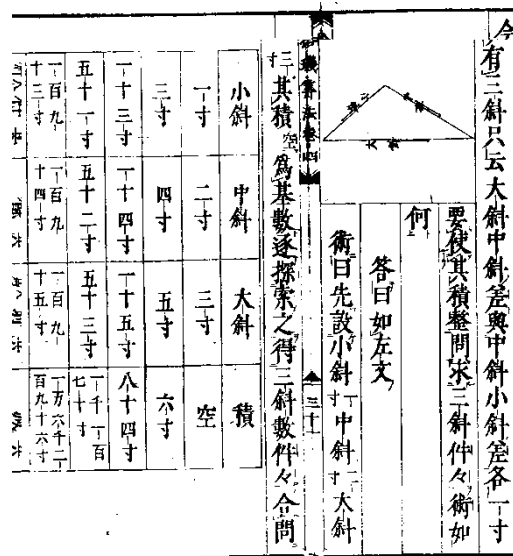 今有三斜只云大斜中斜差與中斜小斜差各一寸
要使其積整問求三斜件々術如
何
答曰如左文
術曰先設小斜一寸中斜二寸大斜
三寸其積空爲基數逐探索之得三斜數件々合問
小斜 中斜 大斜 積
一寸 二寸 三寸 空
三寸 四寸 五寸 六寸
一十三寸 一十四寸 一十五寸 八十四寸
五十一寸 五十二寸 五十三寸 一千一百七十寸
一百九十三寸 一百九十四寸 一百九十五寸 一万六千二百九十六寸